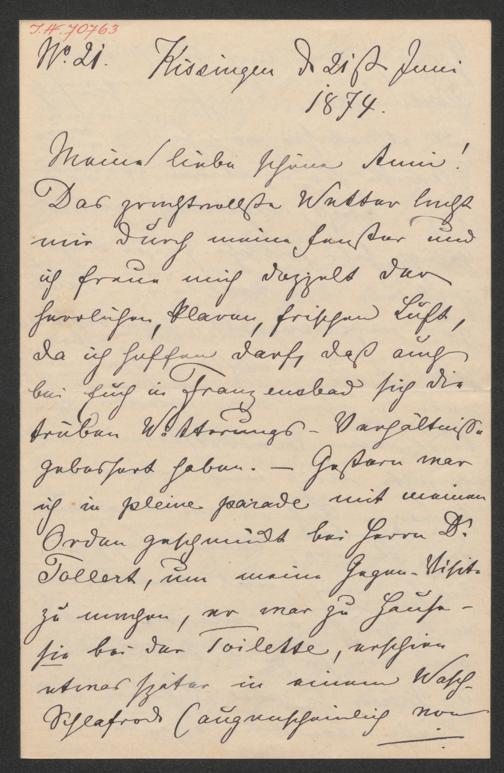 I.N. 70763
No. 21. Kissingen d 21st Juni
1874.
Meine liebe schöne Anni!
Das prachtvollste Wetter lacht
mir durch meine Fenster und
ich freue mich doppelt der
herrlichen, klaren, frischen Luft,
da ich hoffen darf, daß auch
bei Euch in Franzensbad sich die
trüben Witterungs-Verhältnisse
gebessert haben. — Gestern war
ich in pleine parade mit meinen
Orden geschmückt bei Herrn Dr
Tollert, um meine Gegen-Visite
zu machen, er war zu Hause –
sie bei der Toilette, erschien
etwas später in einem Wasch-
Schlafrock (augenscheinlich von